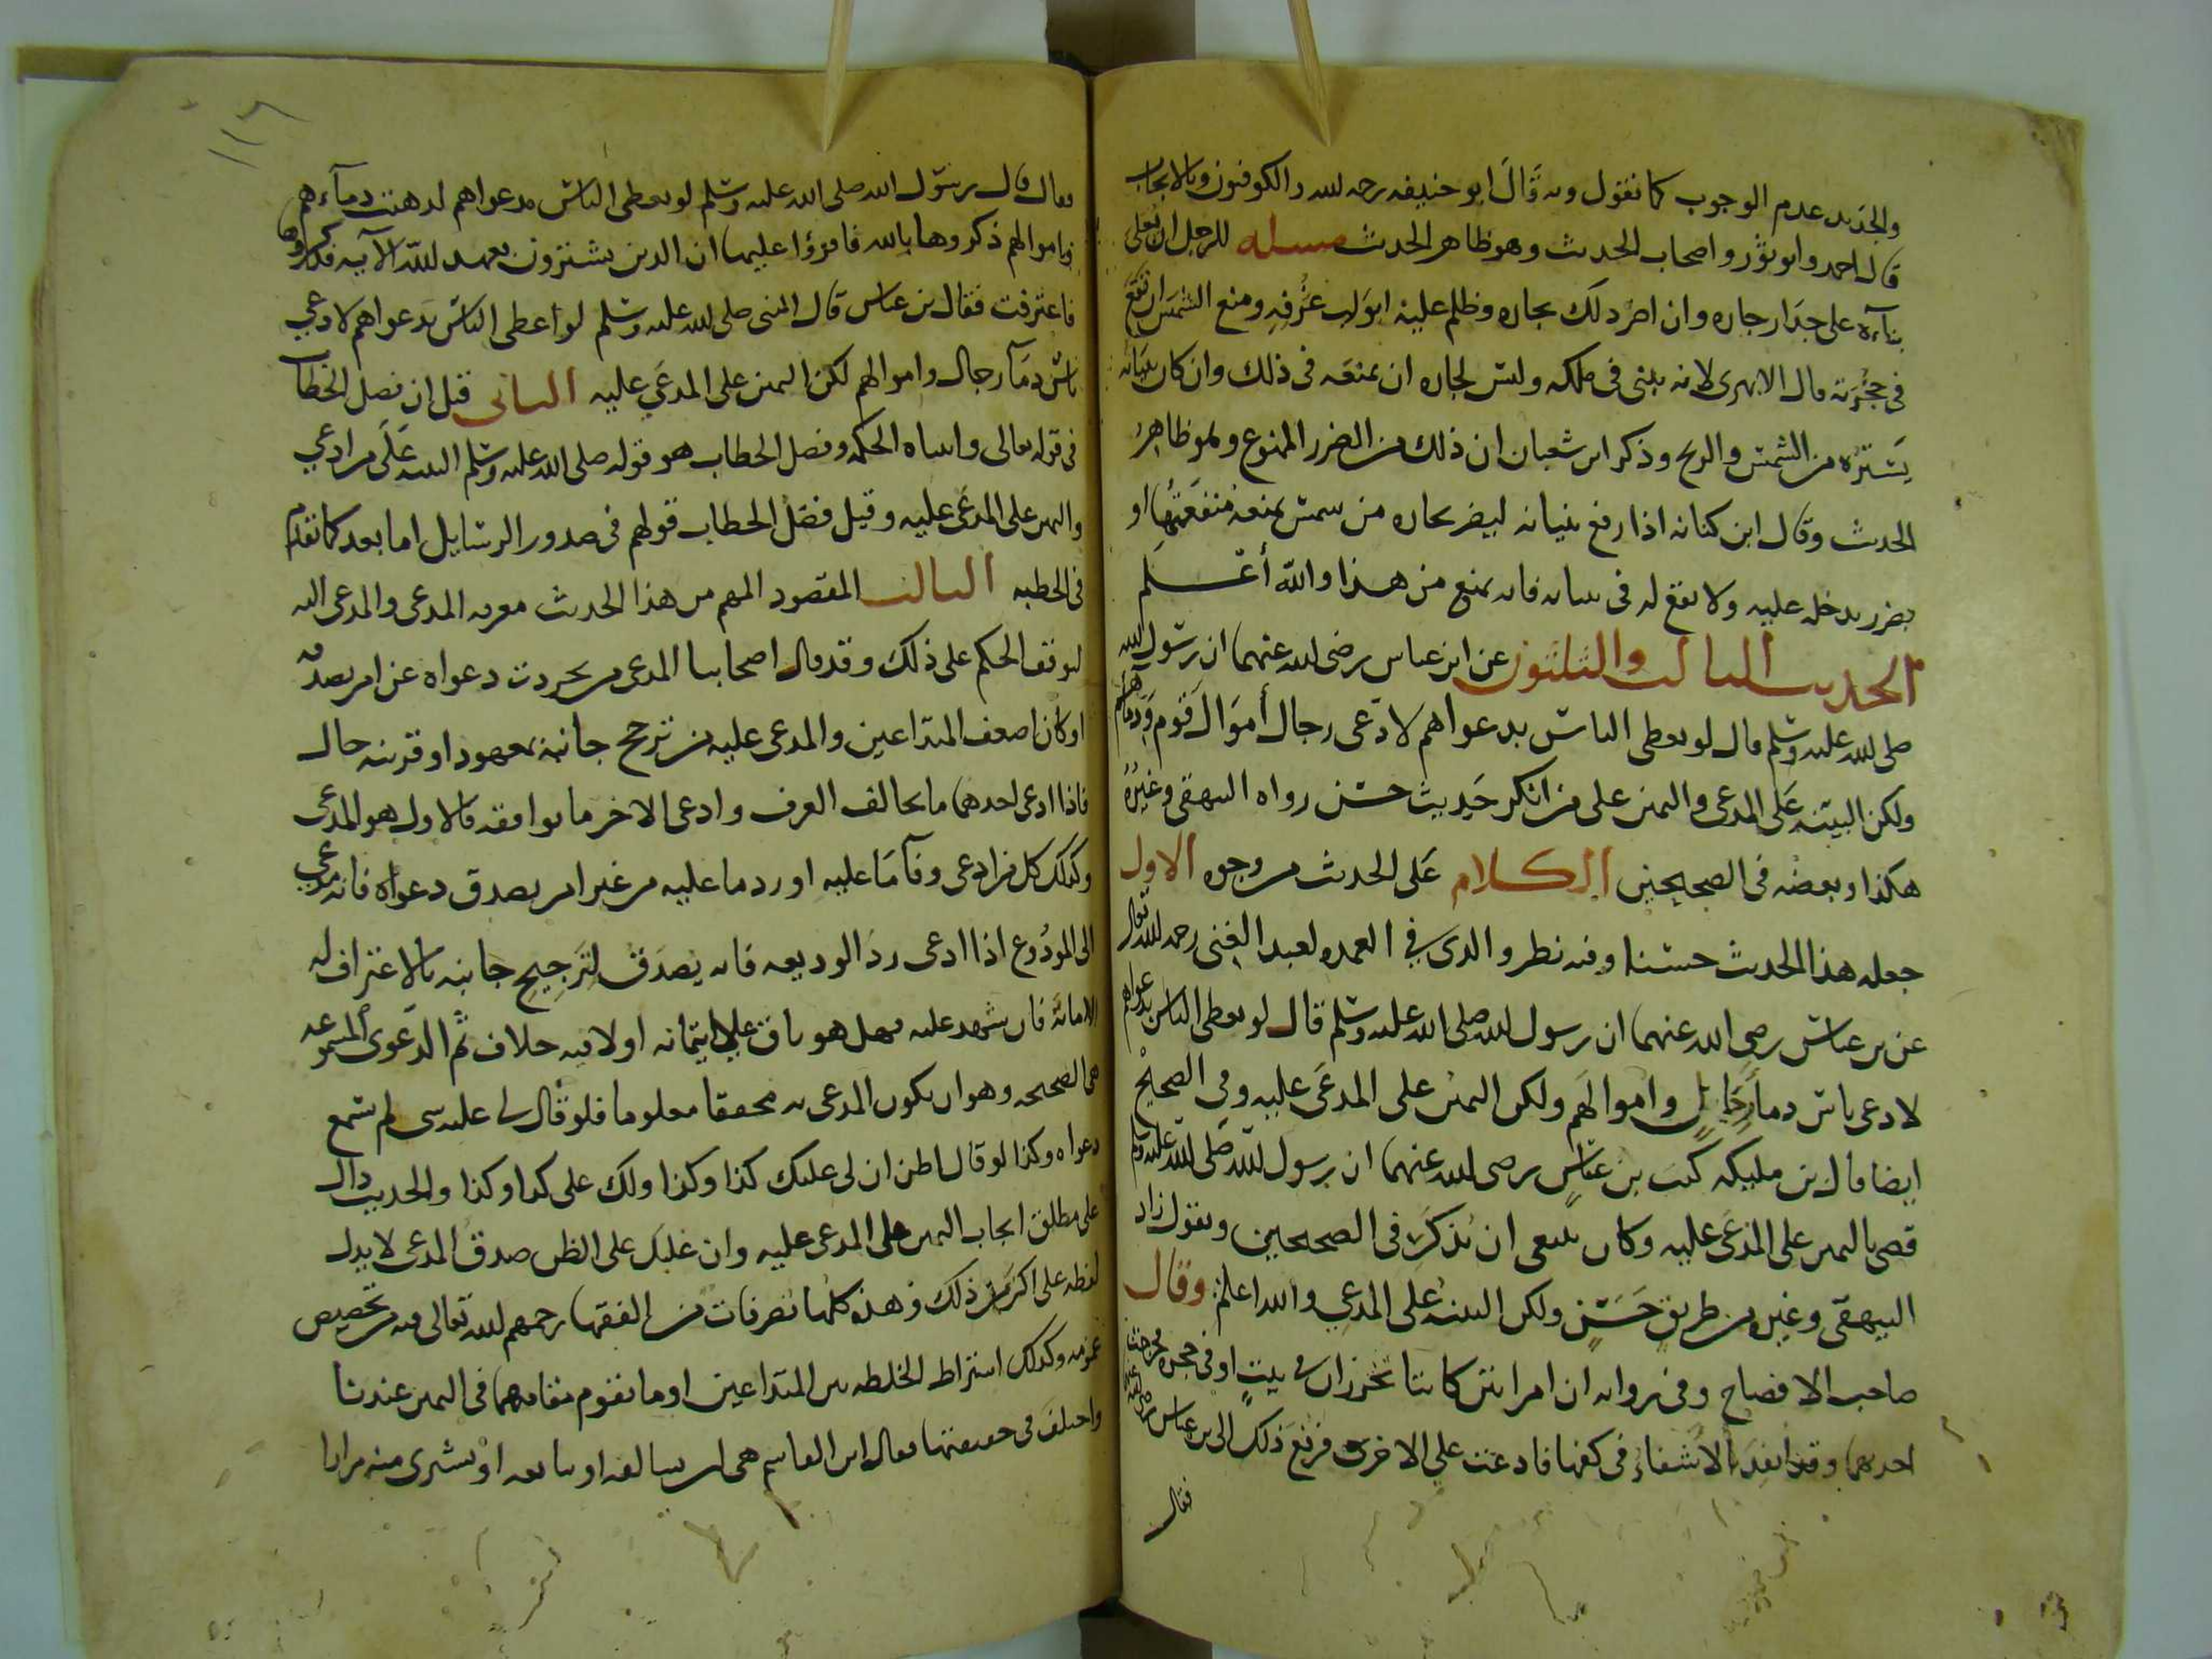 والجديد عدم الوجوب كما نقول وبه قَالَ ابو حنيفه رحمه لله والكوفيون وبالايجاب
قال احمد وابو ثور واصحاب الحديث وهو ظاهر الحديث مسله للرجل ان يعلى
بناءه على جدار جاره وان اضر ذلك بجاره وظلم عليه ابواب غرفه ومنع الشمس ان تقع
في حجرته قال الابهري لانه يبني في ملكه وليس لجاره ان يمنعه في ذلك وان كان بنيانه
يستره من الشمس والريح وذكر ابن شعبان ان ذلك من الضرر الممنوع وهو ظاهر
الحديث وقال ابن كنانه اذا رفع بنيانه ليضر بجاره من شمس يمنعه منفعتها او
بضرر يدخله عليه ولا نفع له في بنيانه فانه يمنع من هذا والله أعلم
الحديث الثالث والثلثون عن ابن عباس رضى لله عنهما ان رسول لله
صلى لله عليه وسلم قال لو يعطى الناس بدعواهم لادعى رجال أموال قوم ودماءهم
ولكن البينه على المدعى واليمين على من انكر حديث حسن رواه البيهقى وغيره
هكذا وبعضه في الصحيحين الكلام على الحديث من وجوه الاول
جعله هذا الحديث حسنا وفيه نظر والذي في العمده لعبد الغني رحمه لله تعالى
عن بن عباس رضي الله عنهما ان رسول لله صلى الله عليه وسلم قال لو يعطى الناس بدعواهم
لادعى ناس دما رجال واموالهم ولكن اليمين على المدعى عليه وفي الصحيح
ايضا قال بن مليكه كتب بن عباس رضى لله عنهما ان رسول لله صلى الله عليه وسلم
قضى باليمين على المدعى عليه وكان ينبغي ان يذكر في الصحيحين ويقول زاد
البيهقى وغيره من طريق حسن ولكن البينه على المدعي والله اعلم وقال
صاحب الافصاح وفي روايه ان امراتين كانتا تخرزان في بيت او في حجره فخرجت
احدهما وقد انفذ الاشفاء في كفها فادعت على الاخرى فرفع ذلك الى بن عباس
فقال
١١٦
فقال قال رسول الله صلى الله عليه وسلم لو يعطى الناس بدعواهم لذهبت دماءهم
واموالهم ذكروها بالله فاقرؤا عليها ان الذين يشترون بعهد لله الآيه فذكروها
فاعترفت فقال بن عباس قال النبى صلى لله عليه وسلم لو اعطى الناس بدعواهم لادعي
ناس دمآ رجال واموالهم لكن اليمين على المدعي عليه الثاني قيل ان فصل الخطاب
في قوله تعالى واتيناه الحكمه وفصل الخطاب هو قوله صلى الله عليه وسلم البينه على من ادعي
واليمين على المدعى عليه وقيل فصل الخطاب قولهم في صدور الرسايل اما بعد كما تقدم
في الخطبه الثالث المقصود المهم من هذا الحديث معرفه المدعى والمدعى اليه
لتوقف الحكم على ذلك وقد قال اصحابنا المدعى من تجردت دعواه عن امر يصدقه
او كان اضعف المتداعين والمدعى عليه من ترجح جانبه بمعهود او قرينه حال
فاذا ادعى احدهما ما يخالف العرف وادعى الاخر ما يوافقه فالاول هو المدعى
وكذلك كل من ادعى وفآ ما عليه او رد ما عليه من غير امر يصدق دعواه فانه مدعي
الى المودوع اذا ادعى رد الوديعه فانه يصدق لترجيح جانبه بالاعتراف له
الامانة فان شهد عليه فهل هو باق على ائتمانه اولا فيه خلاف ثم الدعوى المسموعه
هي الصحيحه وهو ان يكون المدعى به محققا معلوما فلو قال لي عليه شي لم تسمع
دعواه وكذا لو قال اظن ان لى عليك كذا وكذا ولك على كذا وكذا والحديث دال
على مطلق ايجاب اليمين على المدعى عليه وان غلبك على الظن صدق المدعى لا يدل
لفظه على اكثر من ذلك وهذه كلها تصرفات من الفقها رحمهم لله تعالى فيه من تخصيص
عمومه وكذلك اشتراط الخلطه بين المتداعين او ما يقوم مقامهما في اليمين عندنا
واختلف في حقيقتها فقال ابن القاسم هى ان يسالفه او يبايعه او يشترى منه مرارا